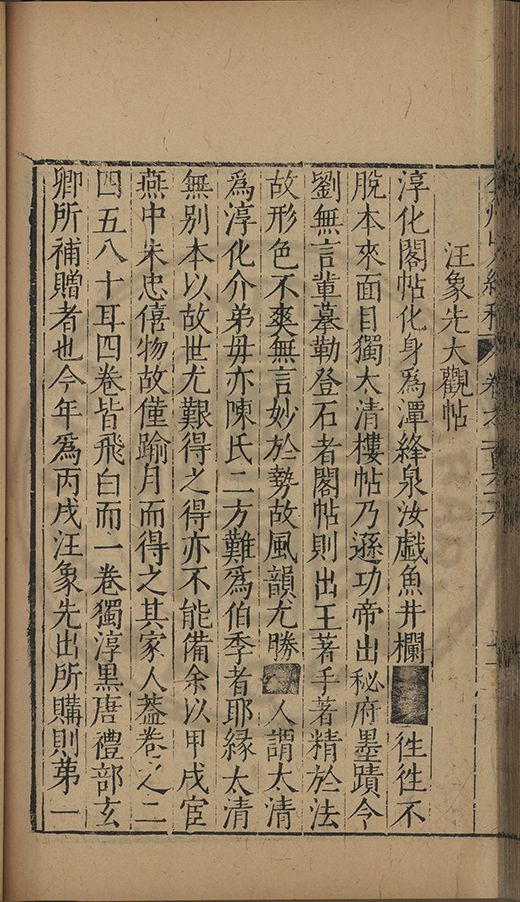 汪象先大觀帖
淳化閣帖化身爲潭絳泉汝戲魚井欄徃徃不
脫本來面目獨太清樓帖乃遜功帝出秘府墨蹟今
劉無言輩摹勒登石者閣帖則出王著手著精於法
故形色不爽無言妙於勢故風韻尤勝人謂太清
爲淳化介弟毋亦陳氏二方難爲伯季者耶緣太清
無别本以故世尤艱得之得亦不能備余以甲戌宦
燕中朱忠僖物故僅踰月而得之其家人葢卷之二
四五八十耳四卷皆飛白而一卷獨淳黒唐禮部玄
卿所補贈者也今年爲丙戌汪象先出所購則苐一